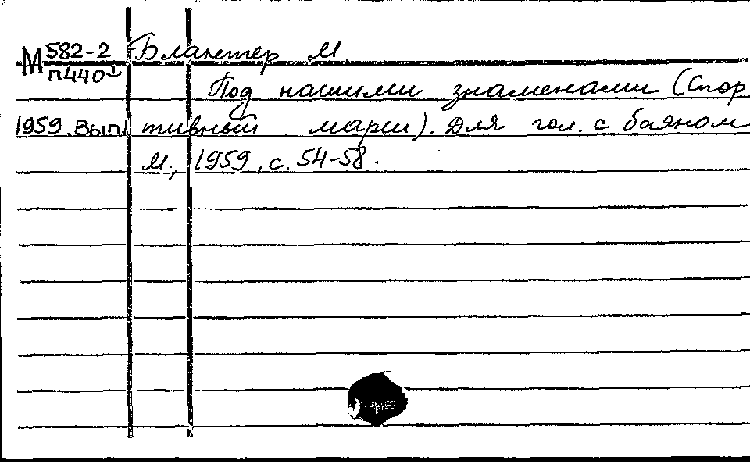 М 582-2 Блантер М.
П440 Под нашими знаменами (Спор
1959. Вып. тивный марш). Для гол. с баяном
М., 1959, с. 54-58.